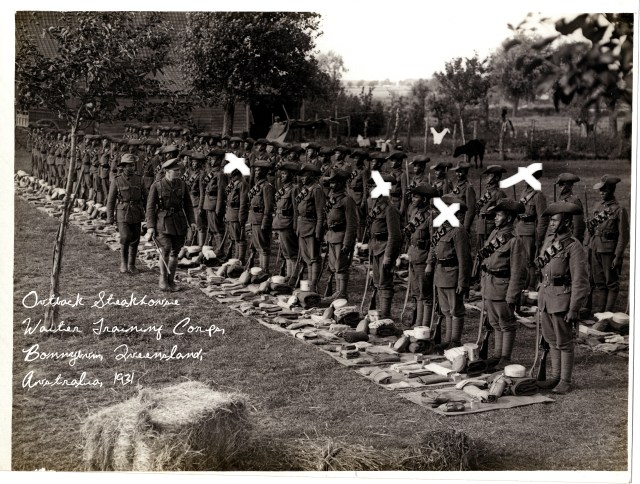 Outback Steakhouse
Waiter Training Corps,
Queensland,
Australia, 1931